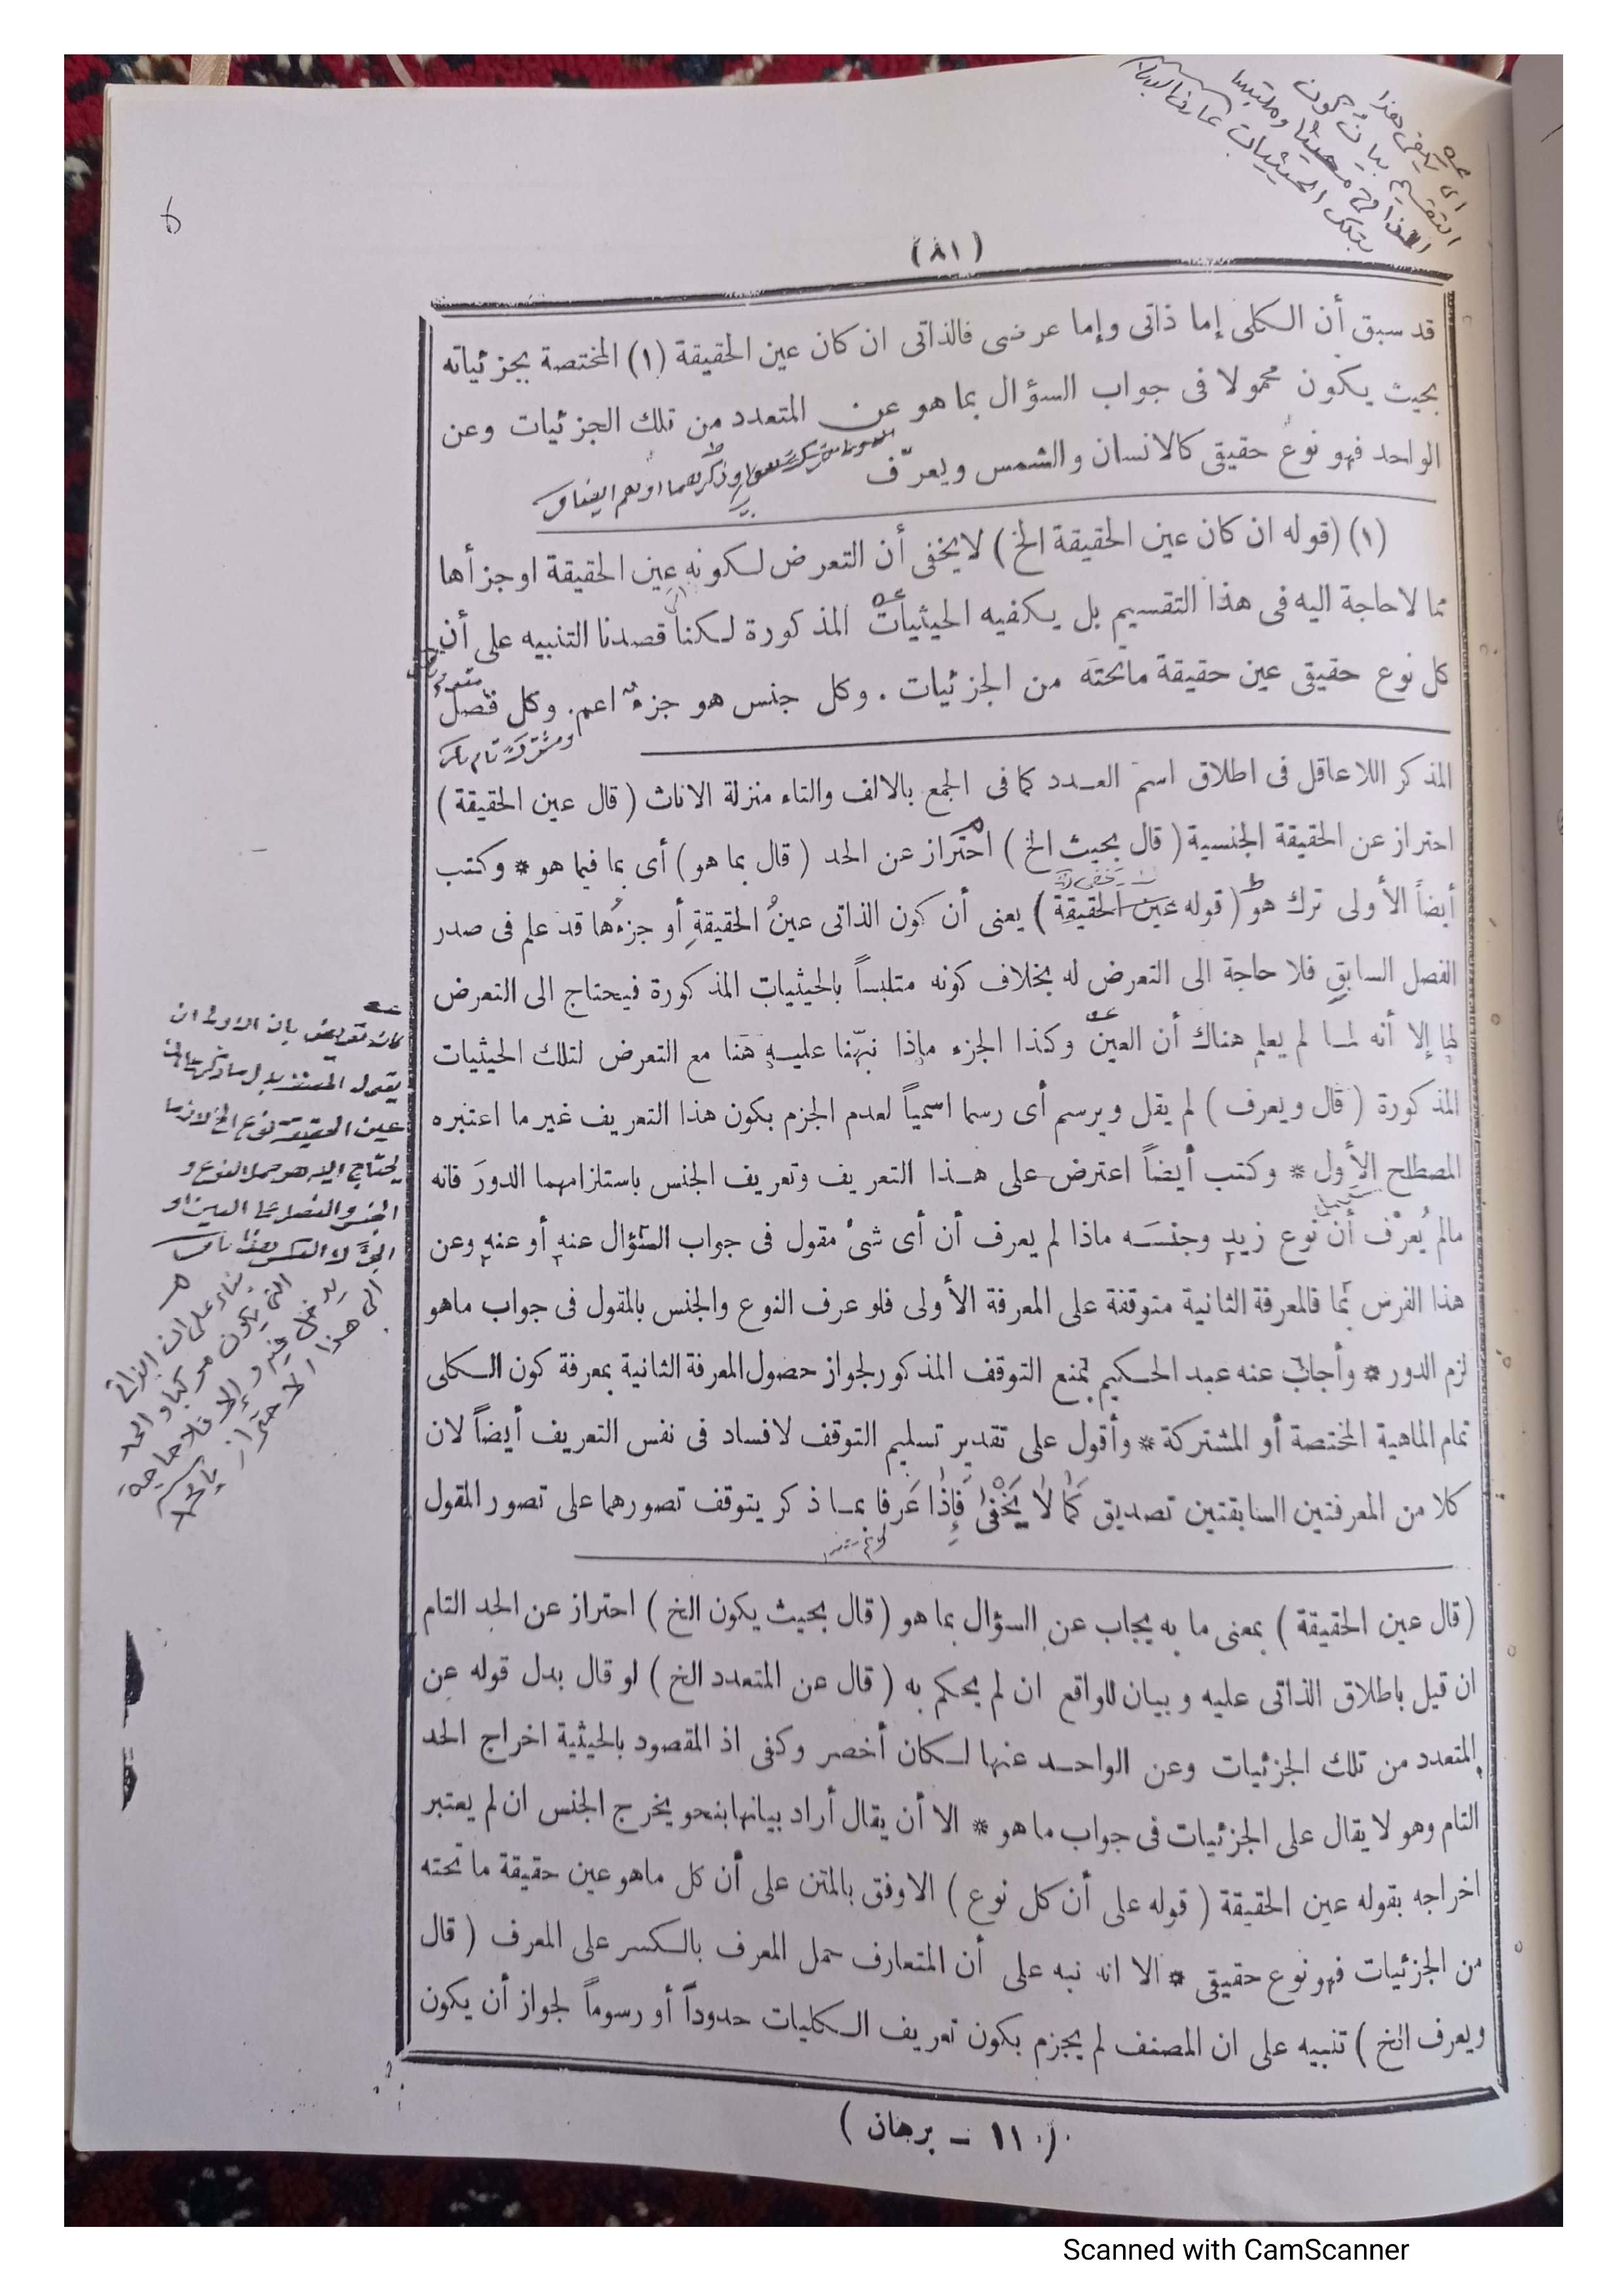 (٨١)
قد سبق أن الكلى إما ذاتى وإما عرضى فالذاتى ان كان عين الحقيقة (١) المختصة بجزئياته
بحيث يكون محمولا فى جواب السؤال بما هو عن المتعدد من تلك الجزئيات وعن
الواحد فهو نوع حقيقى كالانسان والشمس ويعرّف
(١) (قوله ان كان عين الحقيقة الخ) لايخفى أن التعرض لكونه عين الحقيقة اوجزأها
مما لاحاجة اليه فى هذا التقسيم بل يكفيه الحيثيات المذكورة لكنا قصدنا التنبيه على أن
كل نوع حقيقى عين حقيقة ماتحته من الجزئيات . وكل جنس هو جزء اعم. وكل فصل
المذكر اللاعاقل فى اطلاق اسم العدد كما فى الجمع بالالف والتاء منزلة الاناث ( قال عين الحقيقة )
احتراز عن الحقيقة الجنسية ( قال بحيث الخ ) احتراز عن الحد ( قال بما هو ) أى بما فيما هو * وكتب
أيضاً الأولى ترك هو ( قوله عين الحقيقة ) يعنى أن كون الذاتى عينُ الحقيقةِ أو جزءُها قد علم فى صدر
الفصل السابق فلا حاجة الى التعرض له بخلاف كونه متلبساً بالحيثيات المذكورة فيحتاج الى التعرض
لها إلا أنه لما لم يعلم هناك أن العين وكذا الجزء ماذا نبّهنا عليه هنا مع التعرض لتلك الحيثيات
المذكورة ( قال ويعرف ) لم يقل ويرسم أى رسما اسمياً لعدم الجزم بكون هذا التعريف غير ما اعتبره
المصطلح الأول * وكتب أيضاً اعترض على هذا التعريف وتعريف الجنس باستلزامهما الدورَ فانه
مالم يُعرَف أن نوع زيد وجنسَه ماذا لم يعرف أن أى شئ مقول فى جواب السؤال عنه أو عنه وعن
هذا الفرس بما فالمعرفة الثانية متوقفة على المعرفة الأولى فلو عرف النوع والجنس بالمقول فى جواب ماهو
لزم الدور * وأجاب عنه عبد الحكيم بمنع التوقف المذكور لجواز حصول المعرفة الثانية بمعرفة كون الكلى
تمام الماهية المختصة أو المشتركة * وأقول على تقدير تسليم التوقف لافساد فى نفس التعريف أيضاً لان
كلا من المعرفتين السابقتين تصديق كما لا يخفى فإذا عَرفا بما ذكر يتوقف تصورهما على تصور المقول
(قال عين الحقيقة ) بمعنى ما به يجاب عن السؤال بما هو ( قال بحيث يكون الخ ) احتراز عن الحد التام
ان قيل باطلاق الذاتى عليه وبيان للواقع ان لم يحكم به ( قال عن المتعدد الخ ) لو قال بدل قوله عن
المتعدد من تلك الجزئيات وعن الواحد عنها لكان أخصر وكفى اذ المقصود بالحيثية اخراج الحد
التام وهو لا يقال على الجزئيات فى جواب ما هو * الا أن يقال أراد بيانها بنحو يخرج الجنس ان لم يعتبر
اخراجه بقوله عين الحقيقة ( قوله على أن كل نوع ) الاوفق بالمتن على أن كل ماهو عين حقيقة ما تحته
من الجزئيات فهو نوع حقيقى * الا انه نبه على أن المتعارف حمل المعرف بالكسر على المعرف ( قال
ويعرف الخ ) تنبيه على ان المصنف لم يجزم بكون تعريف الكليات حدوداً أو رسوماً لجواز أن يكون
( ١١ — برهان )
Scanned with CamScanner